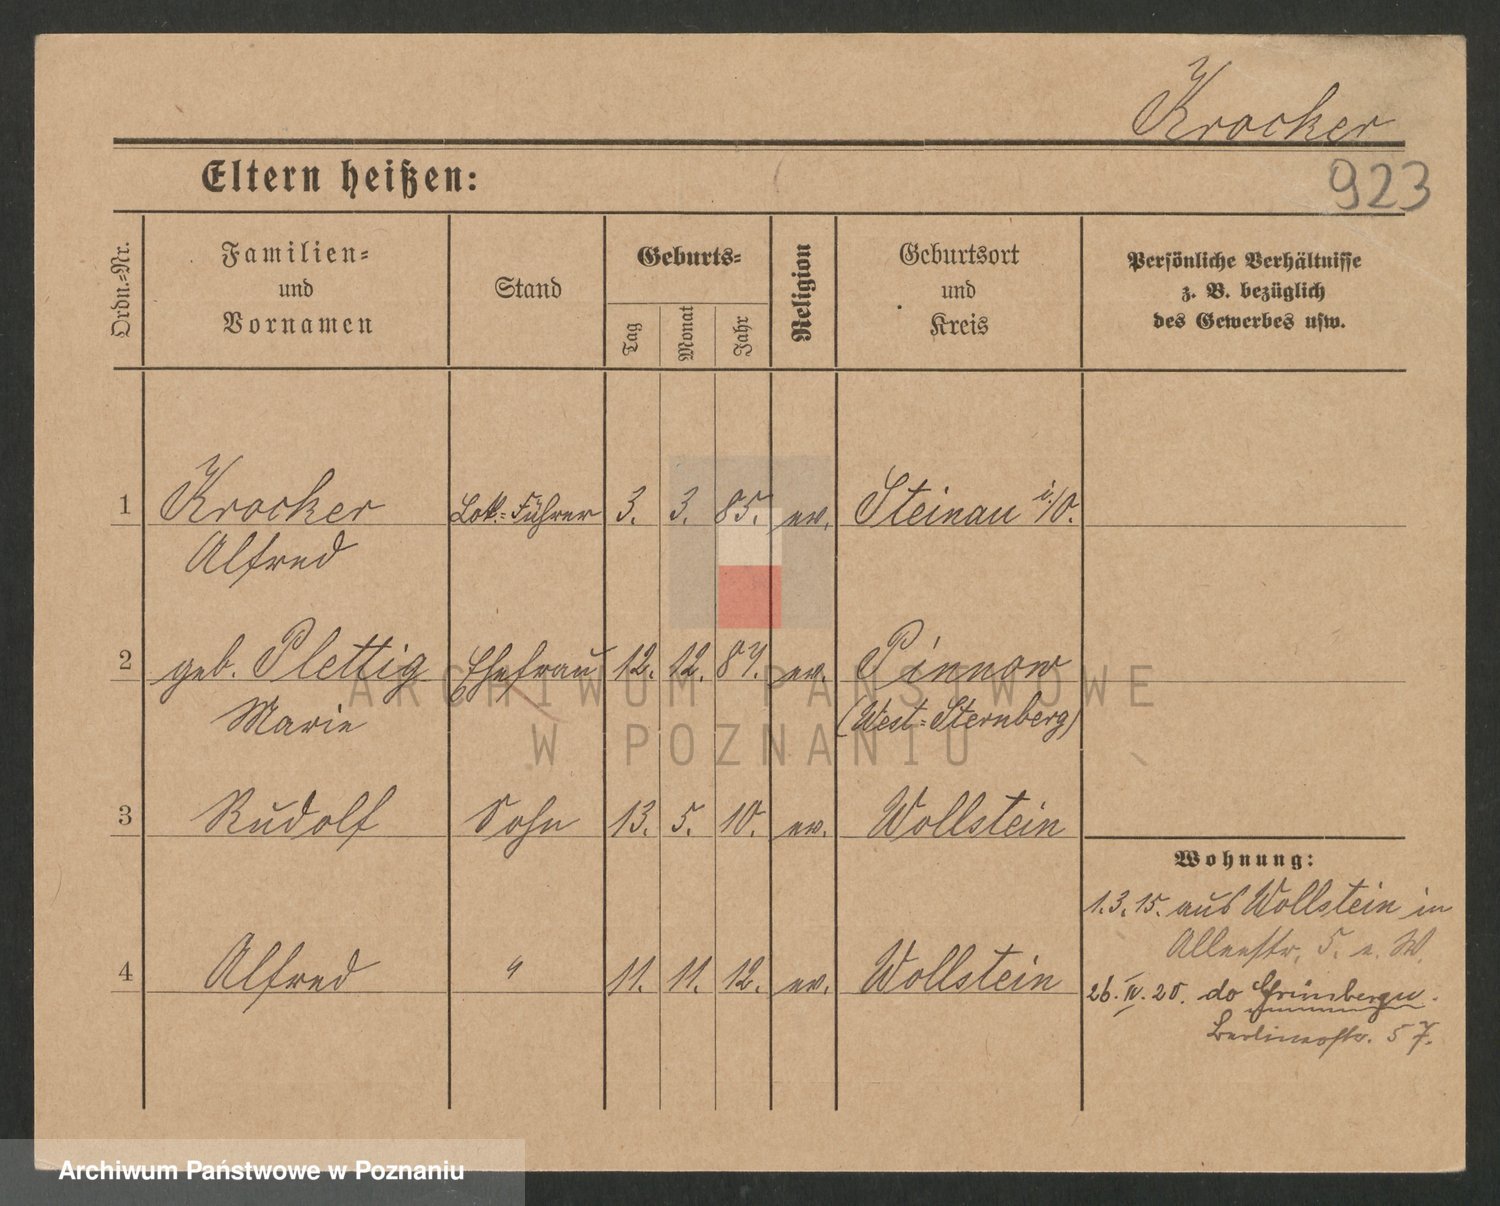 Krocker
Eltern heißen:
923
Ordn.-Nr.
Familien-
und
Vornamen
Stand
Geburts-
Tag
Monat
Jahr
Religion
Geburtsort
und
Kreis
Persönliche Verhältnisse
z. B. bezüglich
des Gewerbes usw.
1 Krocker Lok.-Führer 3. 3. 85. ev. Steinau i./O.
Alfred
2 geb. Plettig Ehefrau 12. 12. 87. ev. Pinnow
Marie (West-Sternberg)
ARCHIWUM PAŃSTWOWE
W POZNANIU
3 Rudolf Sohn 13. 5. 10. ev. Wollstein
Wohnung:
1.3.15. aus Wollstein in
Alleestr. 5. e. W.
4 Alfred " 11. 11. 12. ev. Wollstein
26.IV.20. do Grünbergu.
Berlinerstr. 57.
Archiwum Państwowe w Poznaniu